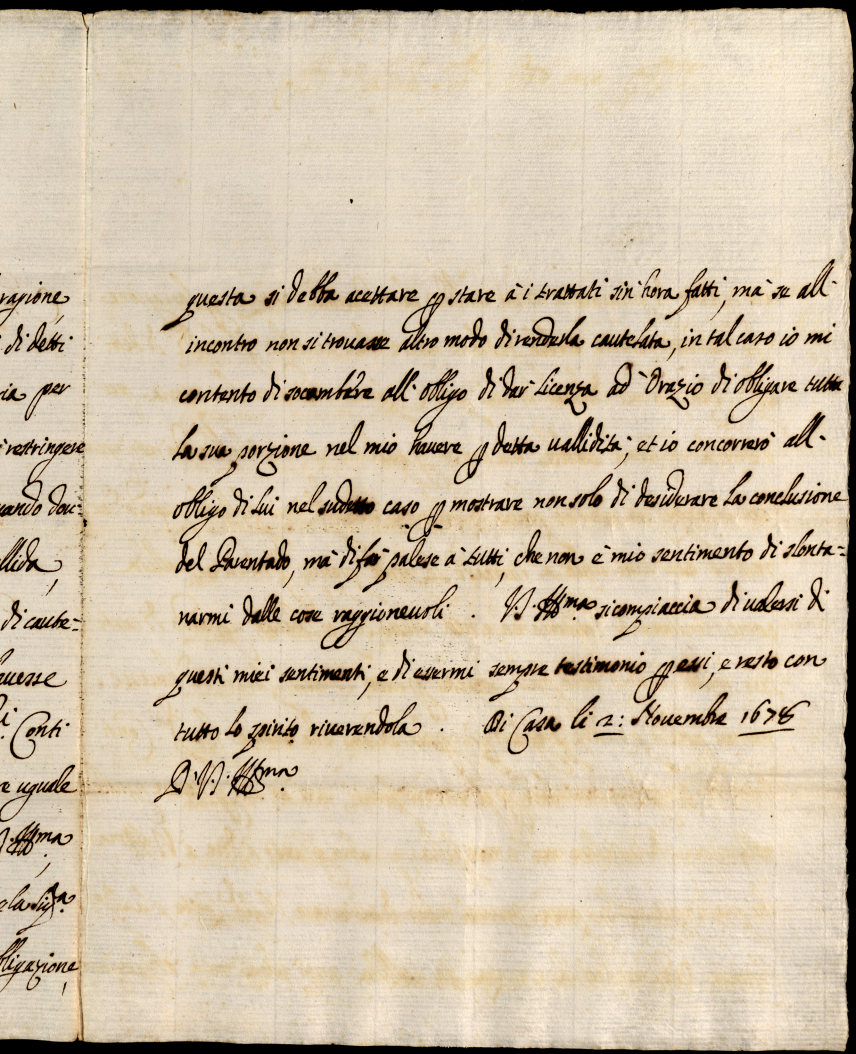 ragione
di detti
ria per
restringere
uando dou:
llida,
di caute=
hauesse
Conti
e uguale
Ill.ma
e la Sig.a
bligazione,
questa si debba acettare p stare à i trattati sin' hora fatti, mà se all'
incontro non si trouasse altro modo di renderla cautelata, in tal caso io mi
contento di socombere all' obligo di dar licenza ad' Orazio di obligare tutta
la sua porzione nel mio hauere p detta uallidità, et io concorrerò all'
obligo di lui nel sudetto caso p mostrare non solo di desiderare la conclusione
del Parentado, mà di far palese à tutti, che non è mio sentimento di slonta=
narmi dalle cose raggioneuoli. V.S. Ill.ma si compiaccia di ualersi di
questi miei sentimenti, e di essermi sempre testimonio p essi, e resto con
tutto lo spirito riuerendola. Di Casa li 2: Nouembre 1678
D. V.S. Ill.ma